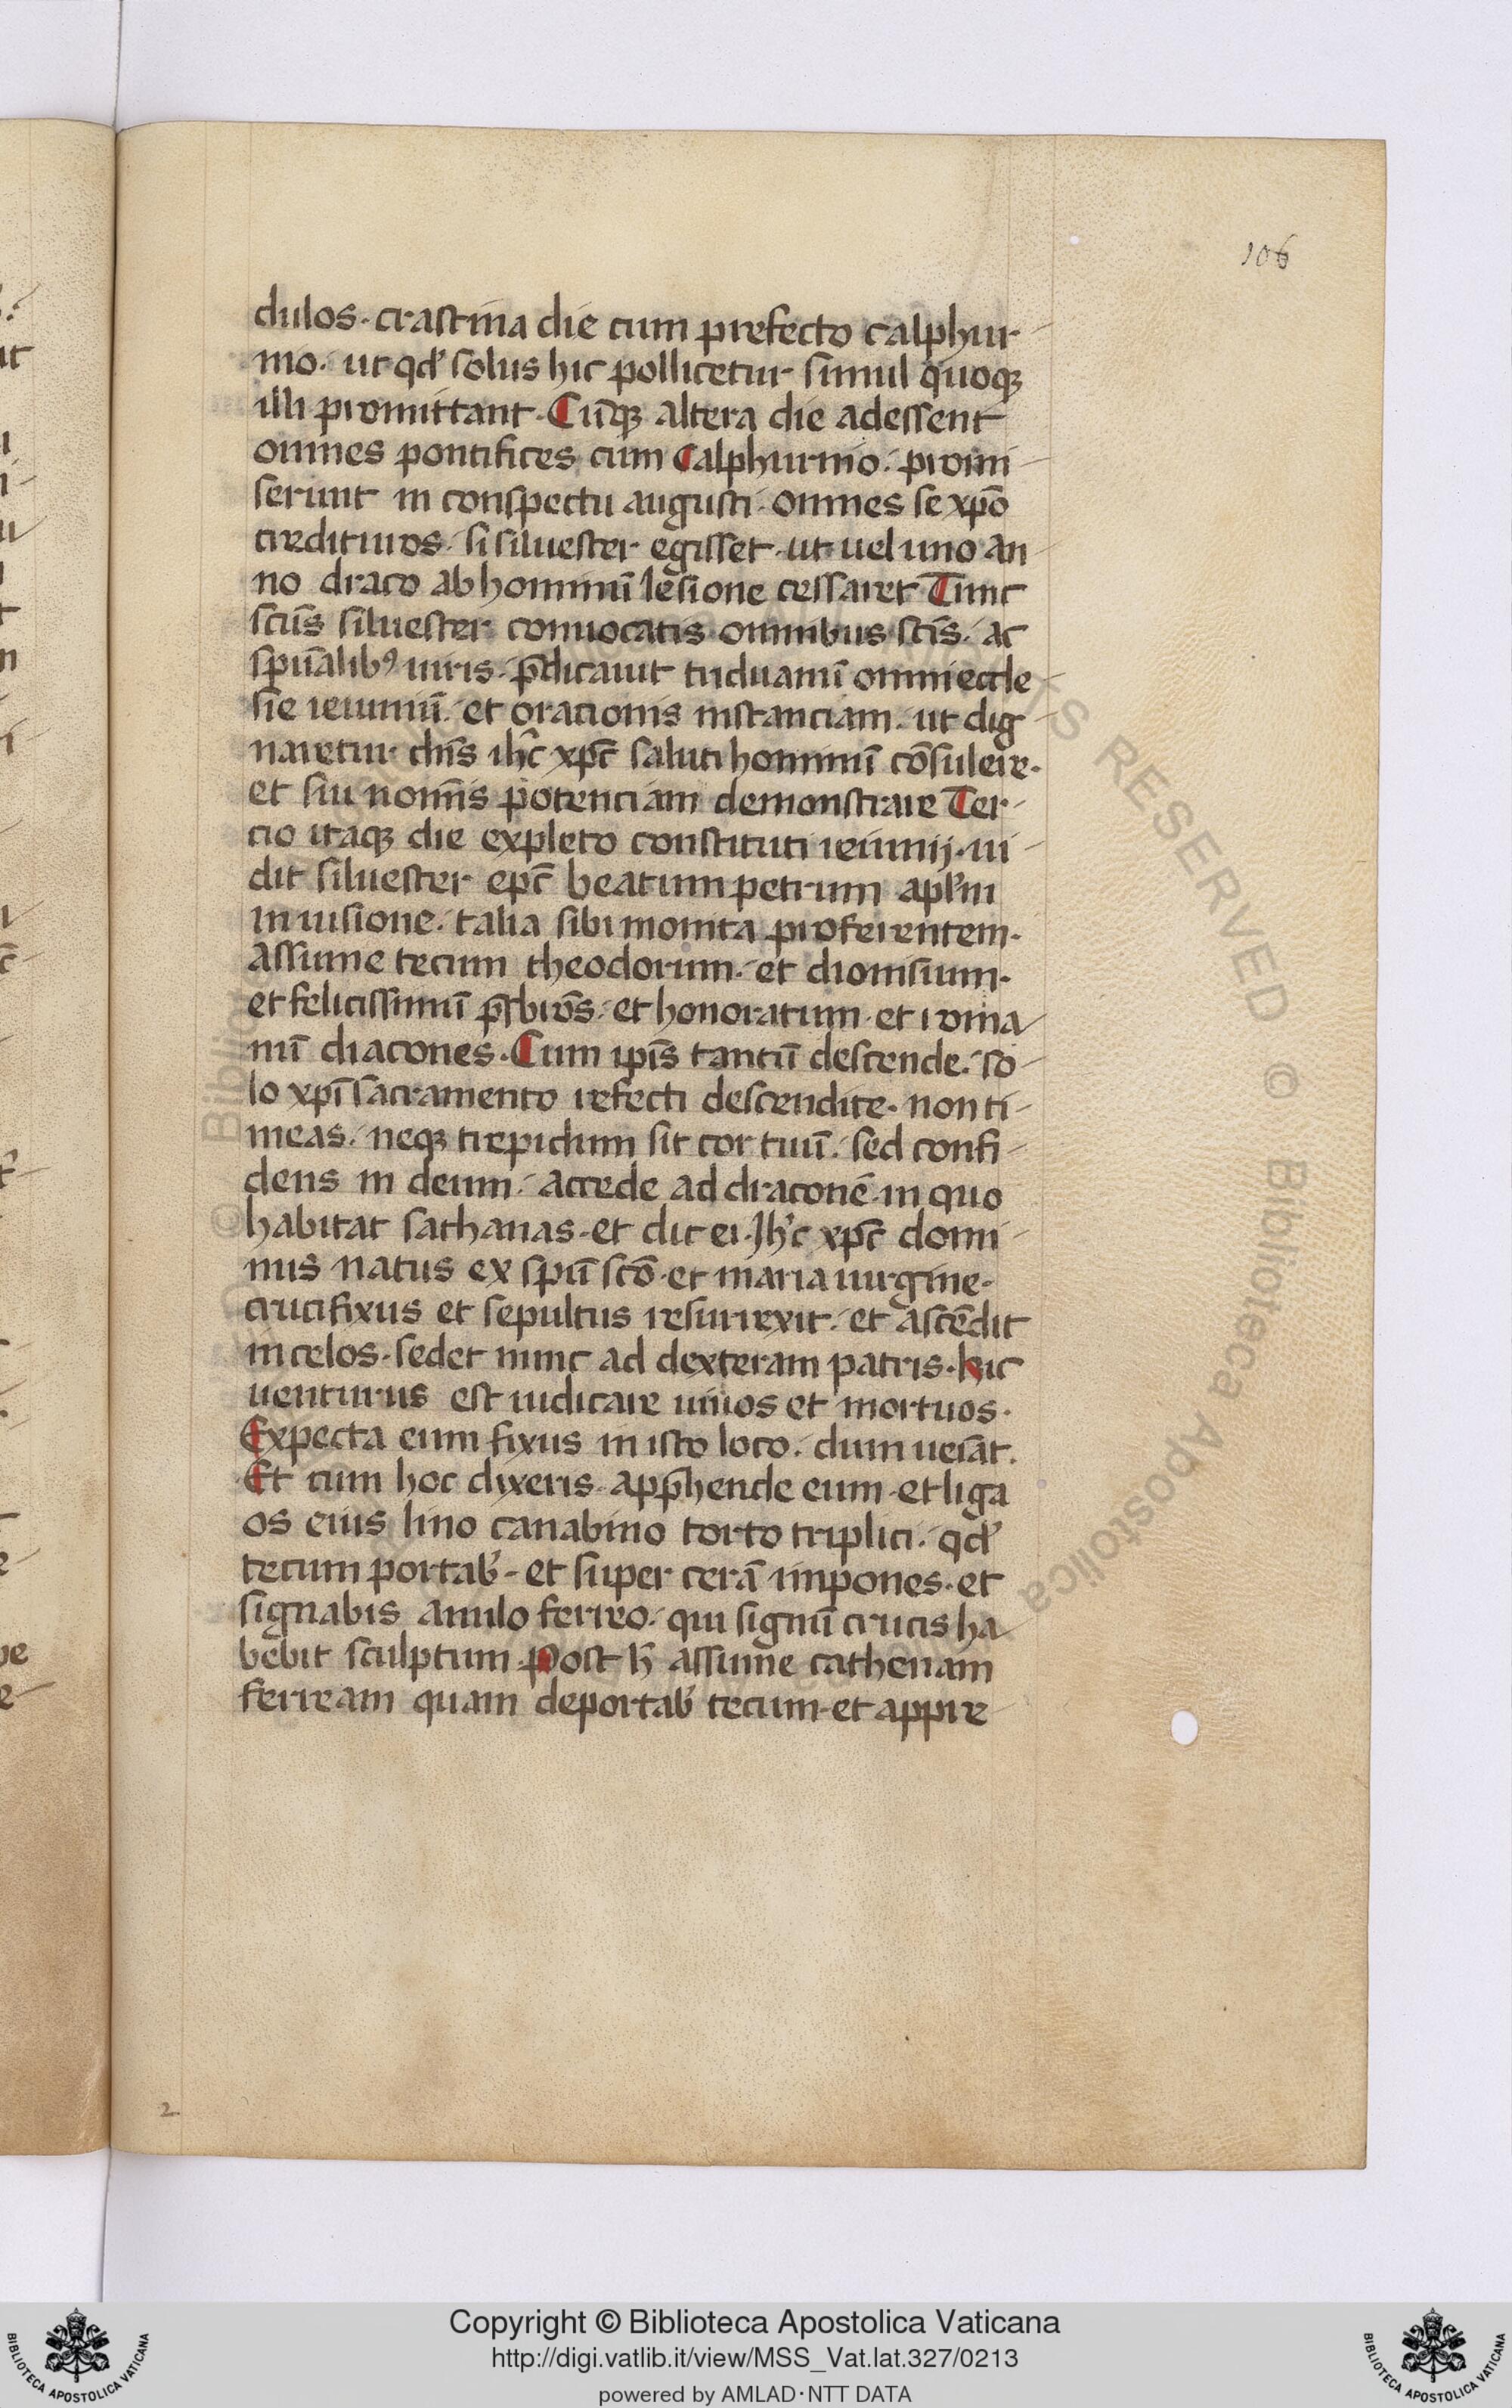 106
dulos · crastina die cum prefecto calphur
nio · ut qd' solus hic pollicetur simul quoqꝫ
illi promittant · Cūqꝫ altera die adessent
omnes pontifices cum Calphurnio · promi
serunt in conspectu augusti · omnes se xp̄o
credituros · si siluester egisset · ut uel uno an
no draco ab hominū lesione cessaret Tunc
sc̄us siluester conuocatis omnibus sc̄is · ac
sp̄ualibꝰ uiris · p̄dicauit triduanū omni eccle
sie ieiuniū · et orationis instanciam · ut dig
naretur dn̄s ih̄c xp̄c saluti hominū cōsulere ·
et sui nom̄s potenciam demonstrare Ter
cio itaqꝫ die expleto constituti ieiunij · ui
dit siluester ep̄c beatum petrum apl'm
in uisione · talia sibi monita proferentem ·
Assume tecum theodorum · et dionisium ·
et felicissimū p̄sbr̄os · et honoratum · et roma
nū diacones · Cum ip̄is tantū descende · so
lo xp̄i sacramento refecti descendite · non ti
meas · neqꝫ trepidum sit cor tuū · sed confi
dens in deum · accede ad draconē in quo
habitat sathanas · et dic ei · Ih'c xp̄c domi
nus natus ex sp̄u sc̄o et maria uirgine ·
crucifixus et sepultus resurrexit · et ascēdit
in celos · sedet nunc ad dexteram patris · hic
uenturus est iudicare uiuos et mortuos ·
Expecta eum fixus in isto loco · dum ueīat ·
Et cum hoc dixeris · app̄hende eum · et liga
os eius lino canabino torto triplici · qd'
tecum portab' · et super cerā impones · et
signabis anulo ferreo · qui signū crucis ha
bebit sculptum · Post h̄ assume cathenam
ferream quam deportab' tecum · et appre
2
© Biblioteca Apostolica
RESERVED
Copyright © Biblioteca Apostolica Vaticana
http://digi.vatlib.it/view/MSS_Vat.lat.327/0213
powered by AMLAD·NTT DATA
BIBLIOTECA APOSTOLICA VATICANA
BIBLIOTECA APOSTOLICA VATICANA